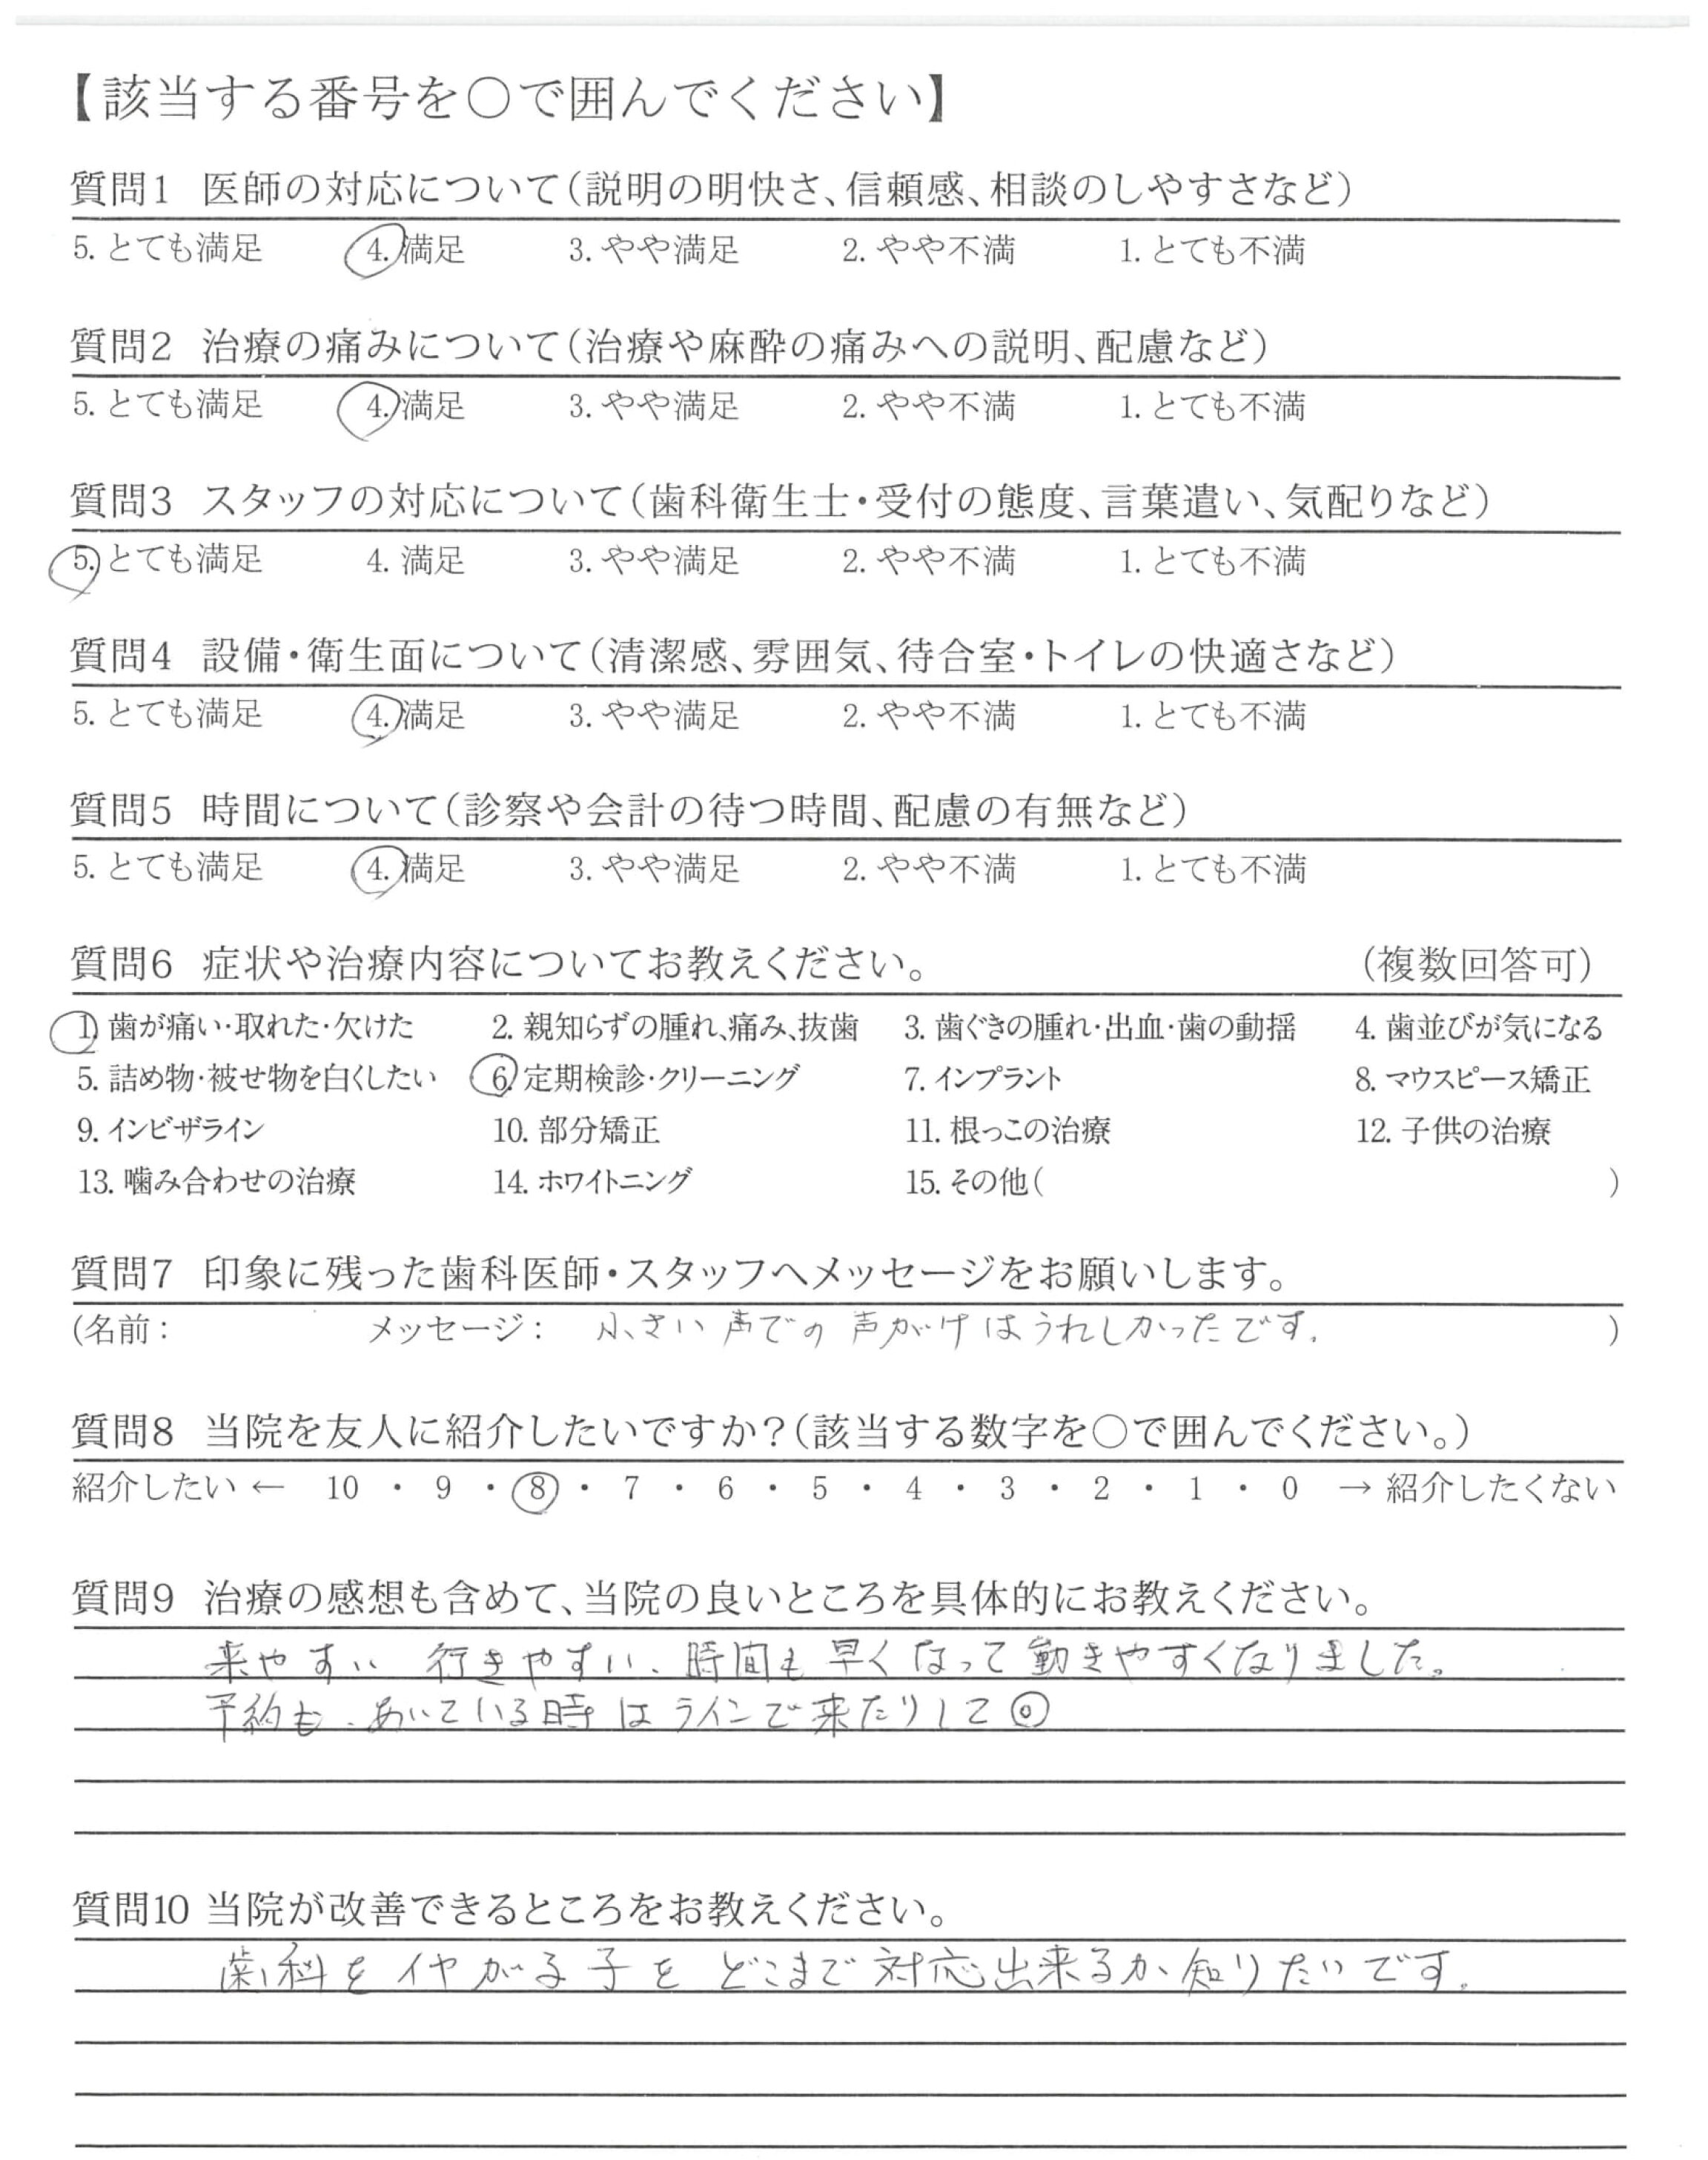 【該当する番号を○で囲んでください】
質問1 医師の対応について(説明の明快さ、信頼感、相談のしやすさなど)
5. とても満足 4. 満足 3. やや満足 2. やや不満 1. とても不満
質問2 治療の痛みについて(治療や麻酔の痛みへの説明、配慮など)
5. とても満足 4. 満足 3. やや満足 2. やや不満 1. とても不満
質問3 スタッフの対応について(歯科衛生士・受付の態度、言葉遣い、気配りなど)
5. とても満足 4. 満足 3. やや満足 2. やや不満 1. とても不満
質問4 設備・衛生面について(清潔感、雰囲気、待合室・トイレの快適さなど)
5. とても満足 4. 満足 3. やや満足 2. やや不満 1. とても不満
質問5 時間について(診察や会計の待つ時間、配慮の有無など)
5. とても満足 4. 満足 3. やや満足 2. やや不満 1. とても不満
質問6 症状や治療内容についてお教えください。 (複数回答可)
1. 歯が痛い・取れた・欠けた 2. 親知らずの腫れ、痛み、抜歯 3. 歯ぐきの腫れ・出血・歯の動揺 4. 歯並びが気になる
5. 詰め物・被せ物を白くしたい 6. 定期検診・クリーニング 7. インプラント 8. マウスピース矯正
9. インビザライン 10. 部分矯正 11. 根っこの治療 12. 子供の治療
13. 噛み合わせの治療 14. ホワイトニング 15. その他( )
質問7 印象に残った歯科医師・スタッフへメッセージをお願いします。
(名前： メッセージ： 小さい声での声がけはうれしかったです. )
質問8 当院を友人に紹介したいですか？(該当する数字を○で囲んでください。)
紹介したい ← 10 ・ 9 ・ 8 ・ 7 ・ 6 ・ 5 ・ 4 ・ 3 ・ 2 ・ 1 ・ 0 → 紹介したくない
質問9 治療の感想も含めて、当院の良いところを具体的にお教えください。
来やすい 行きやすい、時間も早くなって動きやすくなりました。
予約も、あいている時はラインで来たりして◎
質問10 当院が改善できるところをお教えください。
歯科をイヤがる子をどこまで対応出来るか知りたいです。